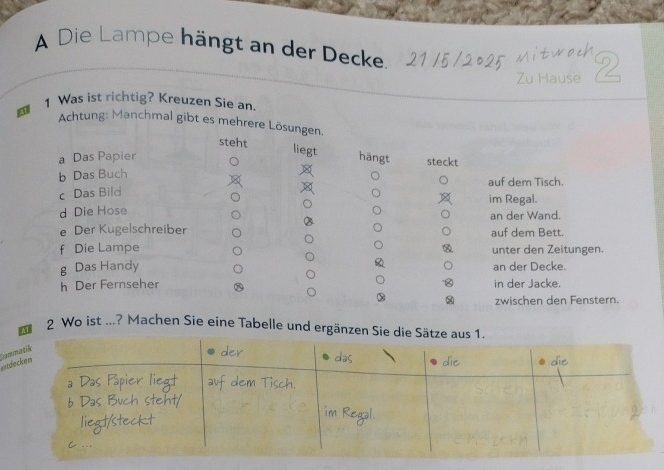 A Die Lampe hängt an der Decke. 21/5/2025 Mitwoch
Zu Hause 2
A1 1 Was ist richtig? Kreuzen Sie an.
Achtung: Manchmal gibt es mehrere Lösungen.
steht liegt hängt steckt
a Das Papier auf dem Tisch.
b Das Buch im Regal.
c Das Bild an der Wand.
d Die Hose auf dem Bett.
e Der Kugelschreiber unter den Zeitungen.
f Die Lampe an der Decke.
g Das Handy in der Jacke.
h Der Fernseher zwischen den Fenstern.
A1 2 Wo ist ...? Machen Sie eine Tabelle und ergänzen Sie die Sätze aus 1.
Grammatik
entdecken
der das die die
a Das Papier liegt auf dem Tisch.
b Das Buch steht/
liegt/steckt im Regal.
c ...